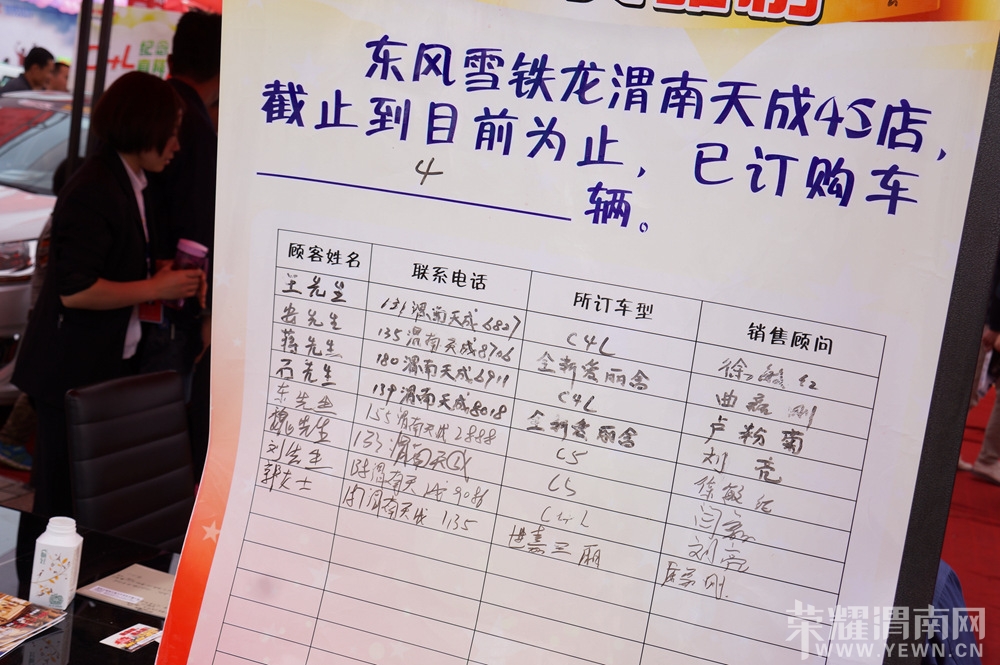 东风雪铁龙渭南天成4S店,
截止到目前为止,已订购车
4 辆。
顾客姓名 联系电话 所订车型 销售顾问
王先生 131渭南天成6827 C4L 徐敏红
安先生 135渭南天成8706 全新爱丽舍
蒋先生 180渭南天成6911 C4L 卢粉菊
石先生 139渭南天成8018 全新爱丽舍 刘亮
东先生 155渭南天成2888 C5 徐敏红
魏先生 133渭南天成 C5
刘先生 渭南天成9086 C4L 刘亮
郭女士 渭南天成1135 世嘉三厢
荣耀渭南网
WWW.YEWN.CN